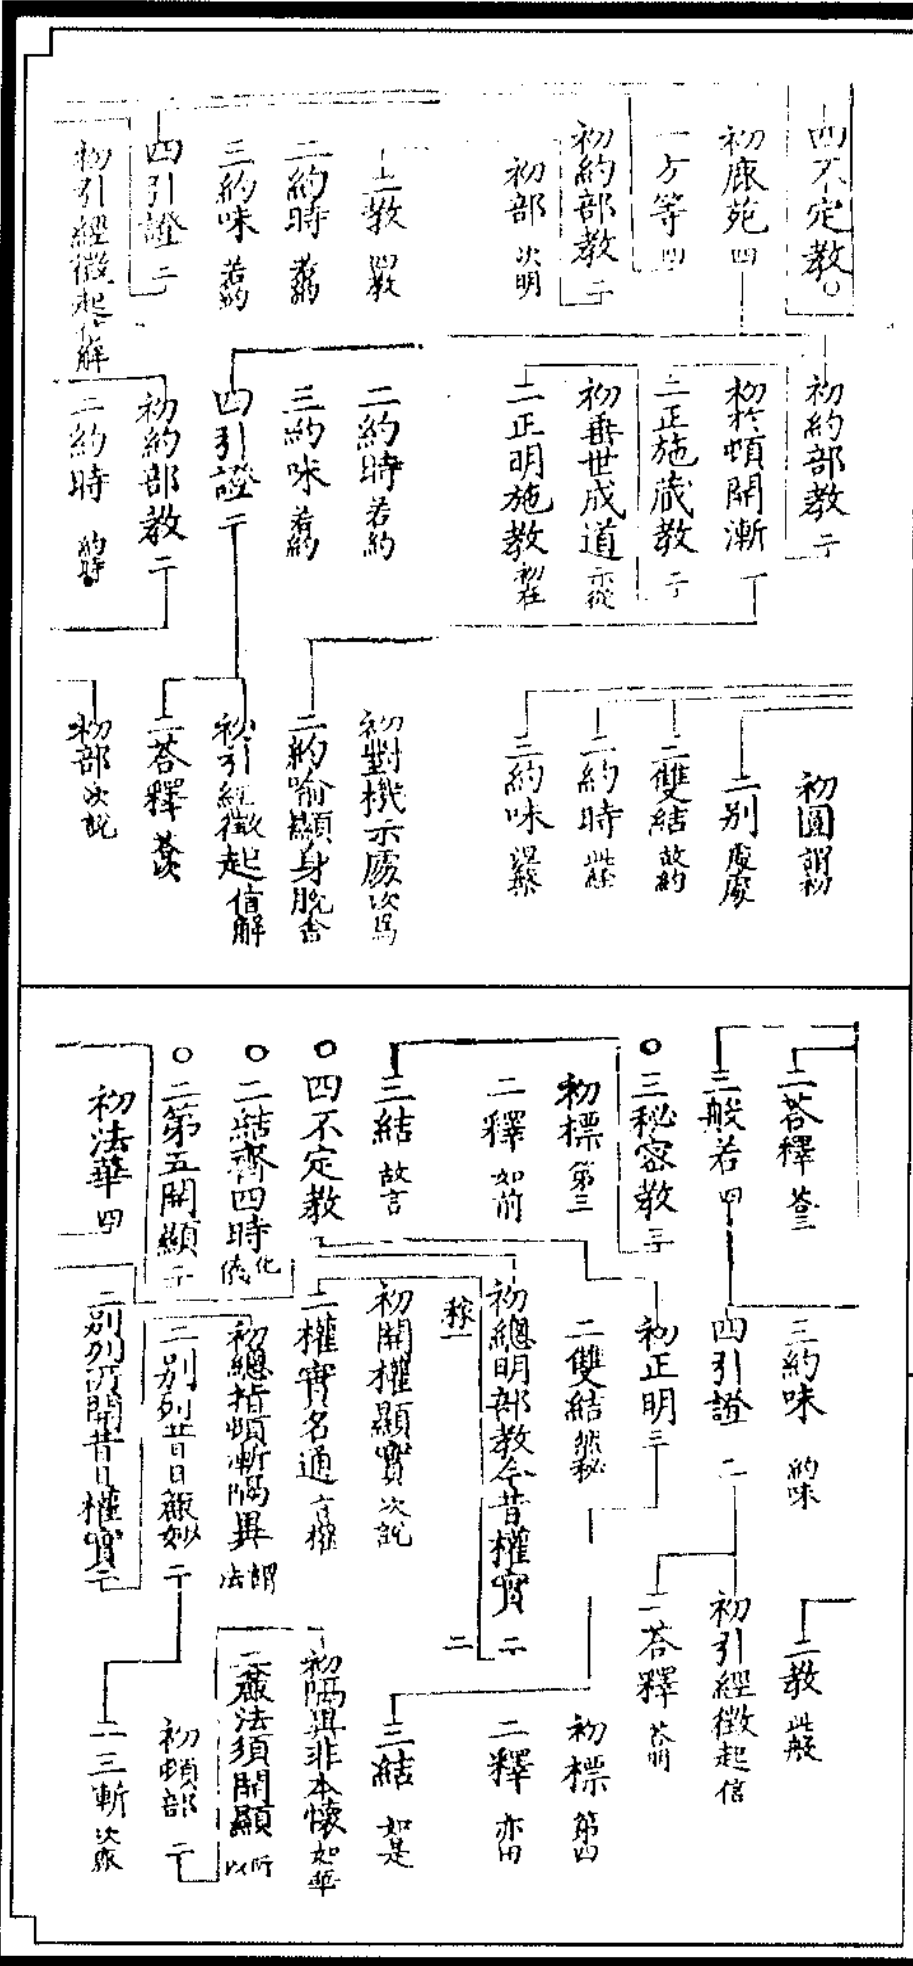 四不定教○
初鹿苑 四
二方等 四
初約部教 二
初部 次明
二教 四教
二約時 若約
三約味 若約
四引證 二
初引經徵起 信解
初約部教 二
初於頓開漸 二
二正施藏教 二
初垂世成道 示從
二正明施教 初在
二約時 若約
三約味 若約
四引證 二
初約部教 二
二約時 約時
初圓 謂初
二別 處處
二雙結 故約
二約時 此經
三約味
初對機示處 次爲
二約喻顯身 脫舍
初引經徵起 信解
二荅釋 荅次
初部 次說
二荅釋 荅三
三般若 四
○三秘密教 二
初標 第三
二釋 如前
三結 故言
○四不定教
○二結齊四時 化儀
○二第五開顯 二
初法華 四
三約味 約味
四引證 二
初正明 三
二雙結 然秘
初總明部教今昔權實 二
初開權顯實 次說
二權實名通 言權
初總指頓漸隔異 謂法
二別列昔日麁妙 二
二別列所開昔日權實 二
二教 此般
初引經徵起 信
二荅釋 荅明
初標 第四
二釋 亦由
三結 如是
初隔異非本懷 如華
二麁法須開顯 以所
初頓部 二
二三漸 次照